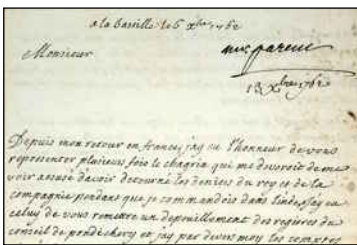 a la bastille le 6 xbre 1762
Monsieur
13 Xbre 1762
Depuis mon retour en france, jay eu l'honneur de vous
representer plusieurs fois le chagrin qui me devoroit de me
voir accusé d'avoir detourné les deniers du roy et de la
compagnie pendant que je commandois dans linde, jay eu
celuy de vous remettre un depouillement des registres du
conseil de pondichery et jay par devers moy les comptes